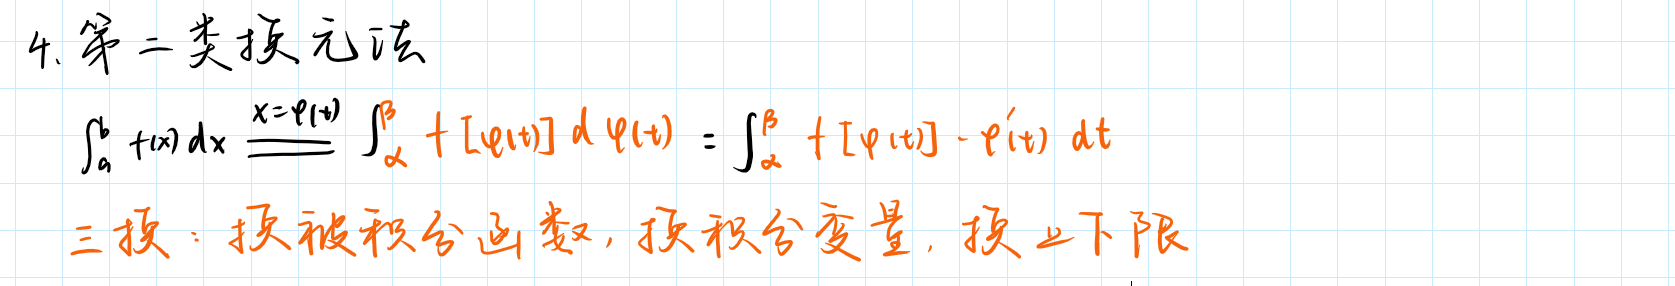 4. 第二类换元法
∫_a^b f(x) dx \xlongequal{x=φ(t)} ∫_α^β f[φ(t)] d φ(t) = ∫_α^β f[φ(t)]·φ'(t) dt
三换：换被积分函数，换积分变量，换上下限